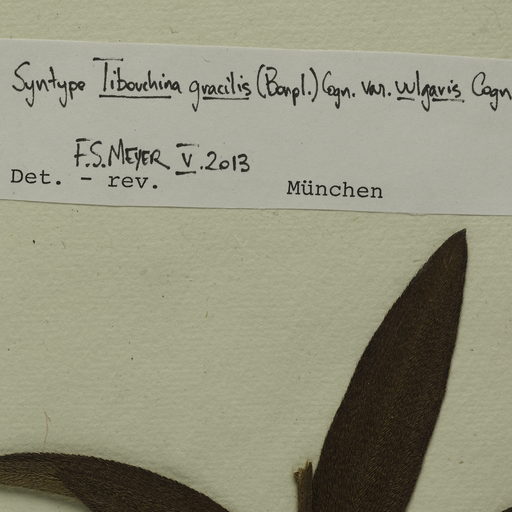 Syntype Tibouchina gracilis (Bonpl.) Cogn. var. vulgaris Cogn
F.S. MEYER V.2013
Det. - rev. München